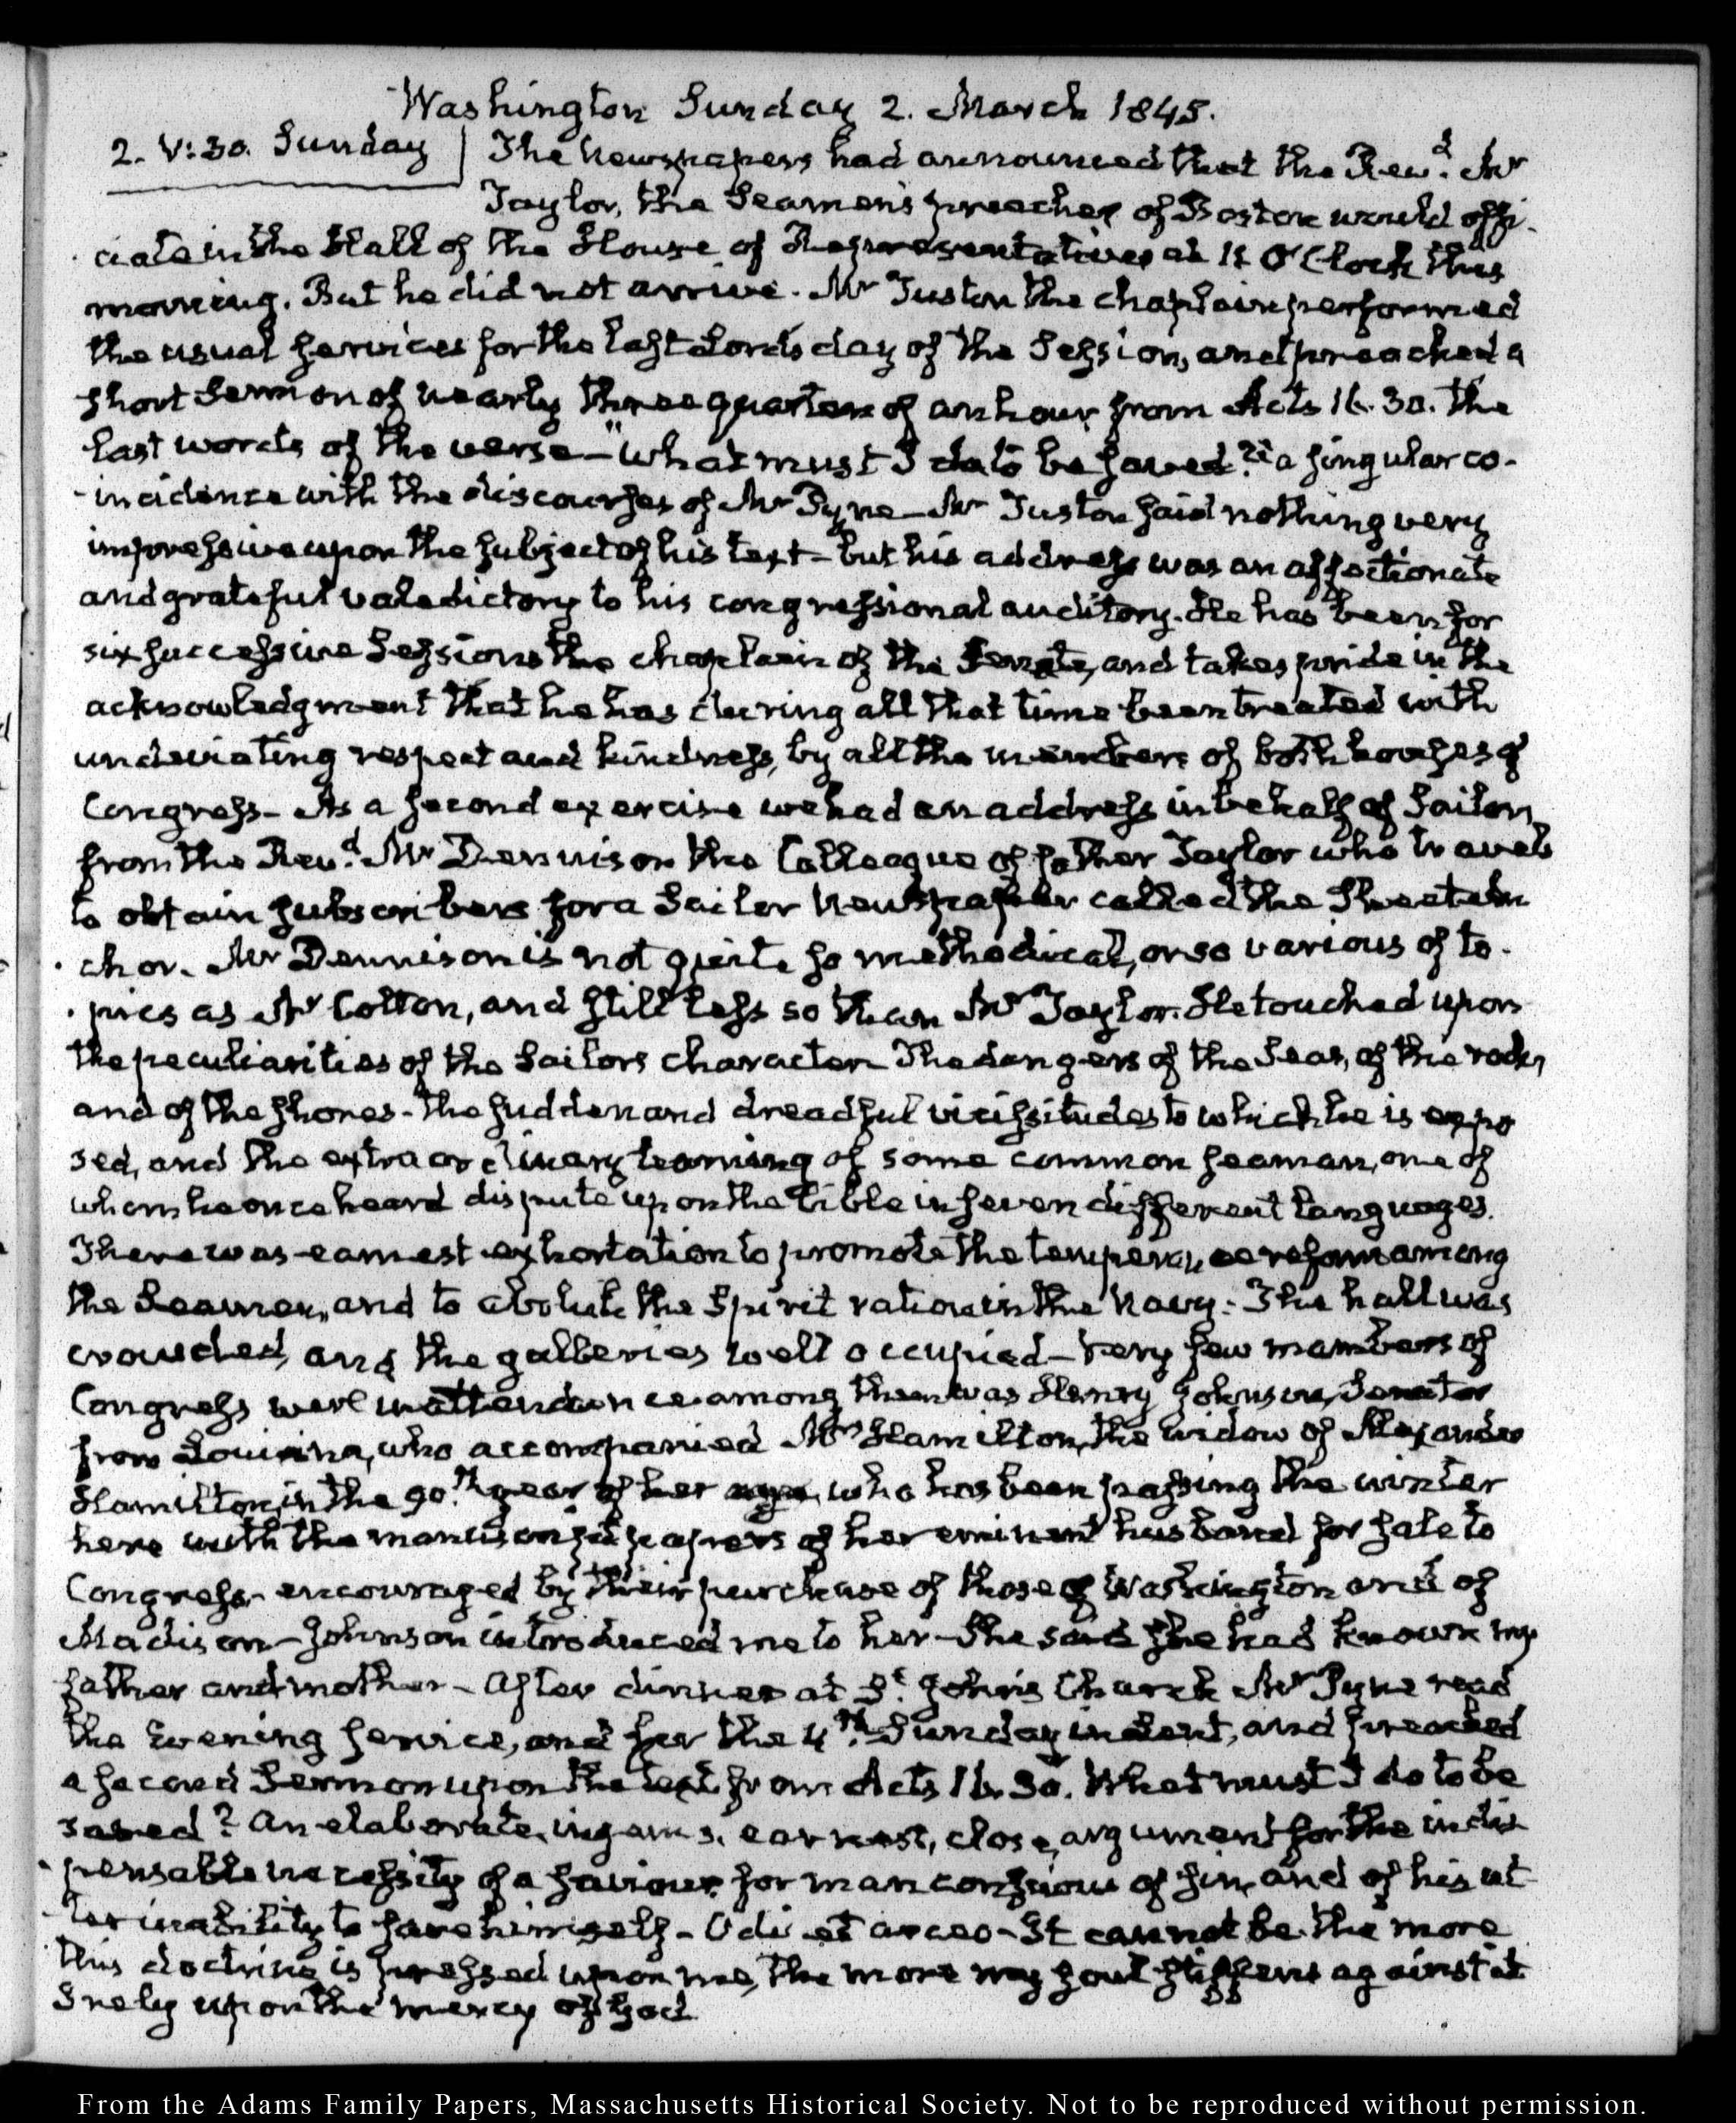 Washington Sunday 2. March 1845.
2. V:30. Sunday
The Newspapers had announced that the Revd. Mr
Taylor, the Seamen's preacher of Boston would offi-
ciate in the Hall of the House of Representatives at 11 O'Clock this
morning. But he did not arrive. Mr Tuston the chaplain performed
the usual services for the last Lord's day of the Session, and preached a
short Sermon of nearly three quarters of an hour from Acts 16. 30. the
last words of the verse—"what must I do to be saved?" a singular co-
incidence with the discourses of Mr Pyne—Mr Tuston said nothing very
impressive upon the subject of his text—but his address was an affectionate
and grateful valedictory to his congressional auditory. He has been for
six successive Sessions the chaplain of the Senate, and takes pride in the
acknowledgment that he has during all that time been treated with
undeviating respect and kindness, by all the members of both houses of
Congress—As a second exercise we had an address in behalf of Sailors
from the Revd. Mr Dennison the Colleague of father Taylor who travels
to obtain subscribers for a Sailor Newspaper called the Sheet An
chor. Mr Dennison is not quite so methodical, or so various of to-
pics as Mr Colton, and still less so than Mr Taylor. He touched upon
the peculiarities of the Sailors character The dangers of the Seas, of the rocks,
and of the shores—the sudden and dreadful vicissitudes to which he is expo
sed, and the extraordinary learning of some common seaman, one of
whom he once heard dispute upon the bible in seven different languages.
There was earnest exhortation to promote the temperance reform among
the Seamen, and to abolish the Spirit ration in the Navy. The hall was
crowded, and the galleries well occupied—Very few members of
Congress were in attendance among them was Henry Johnson, Senator
from Louisiana, who accompanied Mrs Hamilton, the widow of Alexander
Hamilton, in the 90.th year of her age, who has been passing the winter
here with the manuscript papers of her eminent husband for sale to
Congress, encouraged by their purchase of those of Washington and of
Madison—Johnson introduced me to her—She said She had known my
father and mother—After dinner at St. John's Church Mr Pyne read
the Evening service, and for the 4.th Sunday in Lent, and preached
a second Sermon upon the text from Acts 16. 30. What must I do to be
saved? An elaborate, ingenious, earnest, close, argument for the indis
pensable necessity of a saviour for man conscious of sin, and of his ut
ter inability to save himself—Odi et arceo—It cannot be. the more
this doctrine is pressed upon me, the more my soul stiffens against it
I rely upon the mercy of God
From the Adams Family Papers, Massachusetts Historical Society. Not to be reproduced without permission.